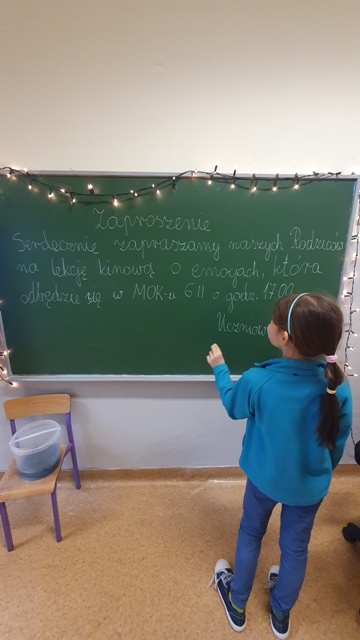 Zaproszenie
Serdecznie zapraszamy naszych Rodziców
na lekcję kinową o emocjach, która
odbędzie się w MOK-u 6 II o godz. 17.00
Uczniow